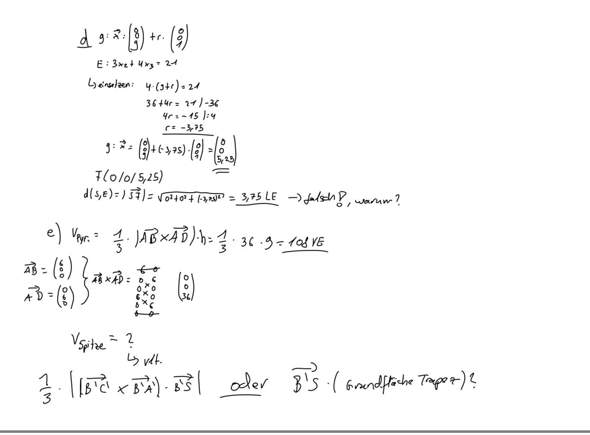 d g: x⃗: (0 0 9) + r · (0 0 1)
E: 3x2 + 4x3 = 21
↳ einsetzen: 4·(9+r) = 21
36+4r = 21 /-36
4r = -15 /:4
r = -3,75
g: x⃗ = (0 0 9) + (-3,75) · (0 0 1) = (0 0 5,25)
F(0/0/5,25)
d(S,E) = |SF⃗| = √(0²+0²+(-3,75)²) = 3,75 LE → falsch?, warum?
e) VPyr. = 1/3 · |AB⃗ × AD⃗| · h = 1/3 · 36 · 9 = 108 VE
AB⃗ = (6 0 0)
AD⃗ = (0 6 0) } AB⃗ × AD⃗ = (0 0 36)
6 0
0 6
0 × 0
6 × 0
0 × 6
0 0
VSpitze = ?
↳ vllt.
1/3 · |[B'C'⃗ × B'A'⃗] · B'S⃗| oder B'S⃗ · (Grundfläche Trapez)?